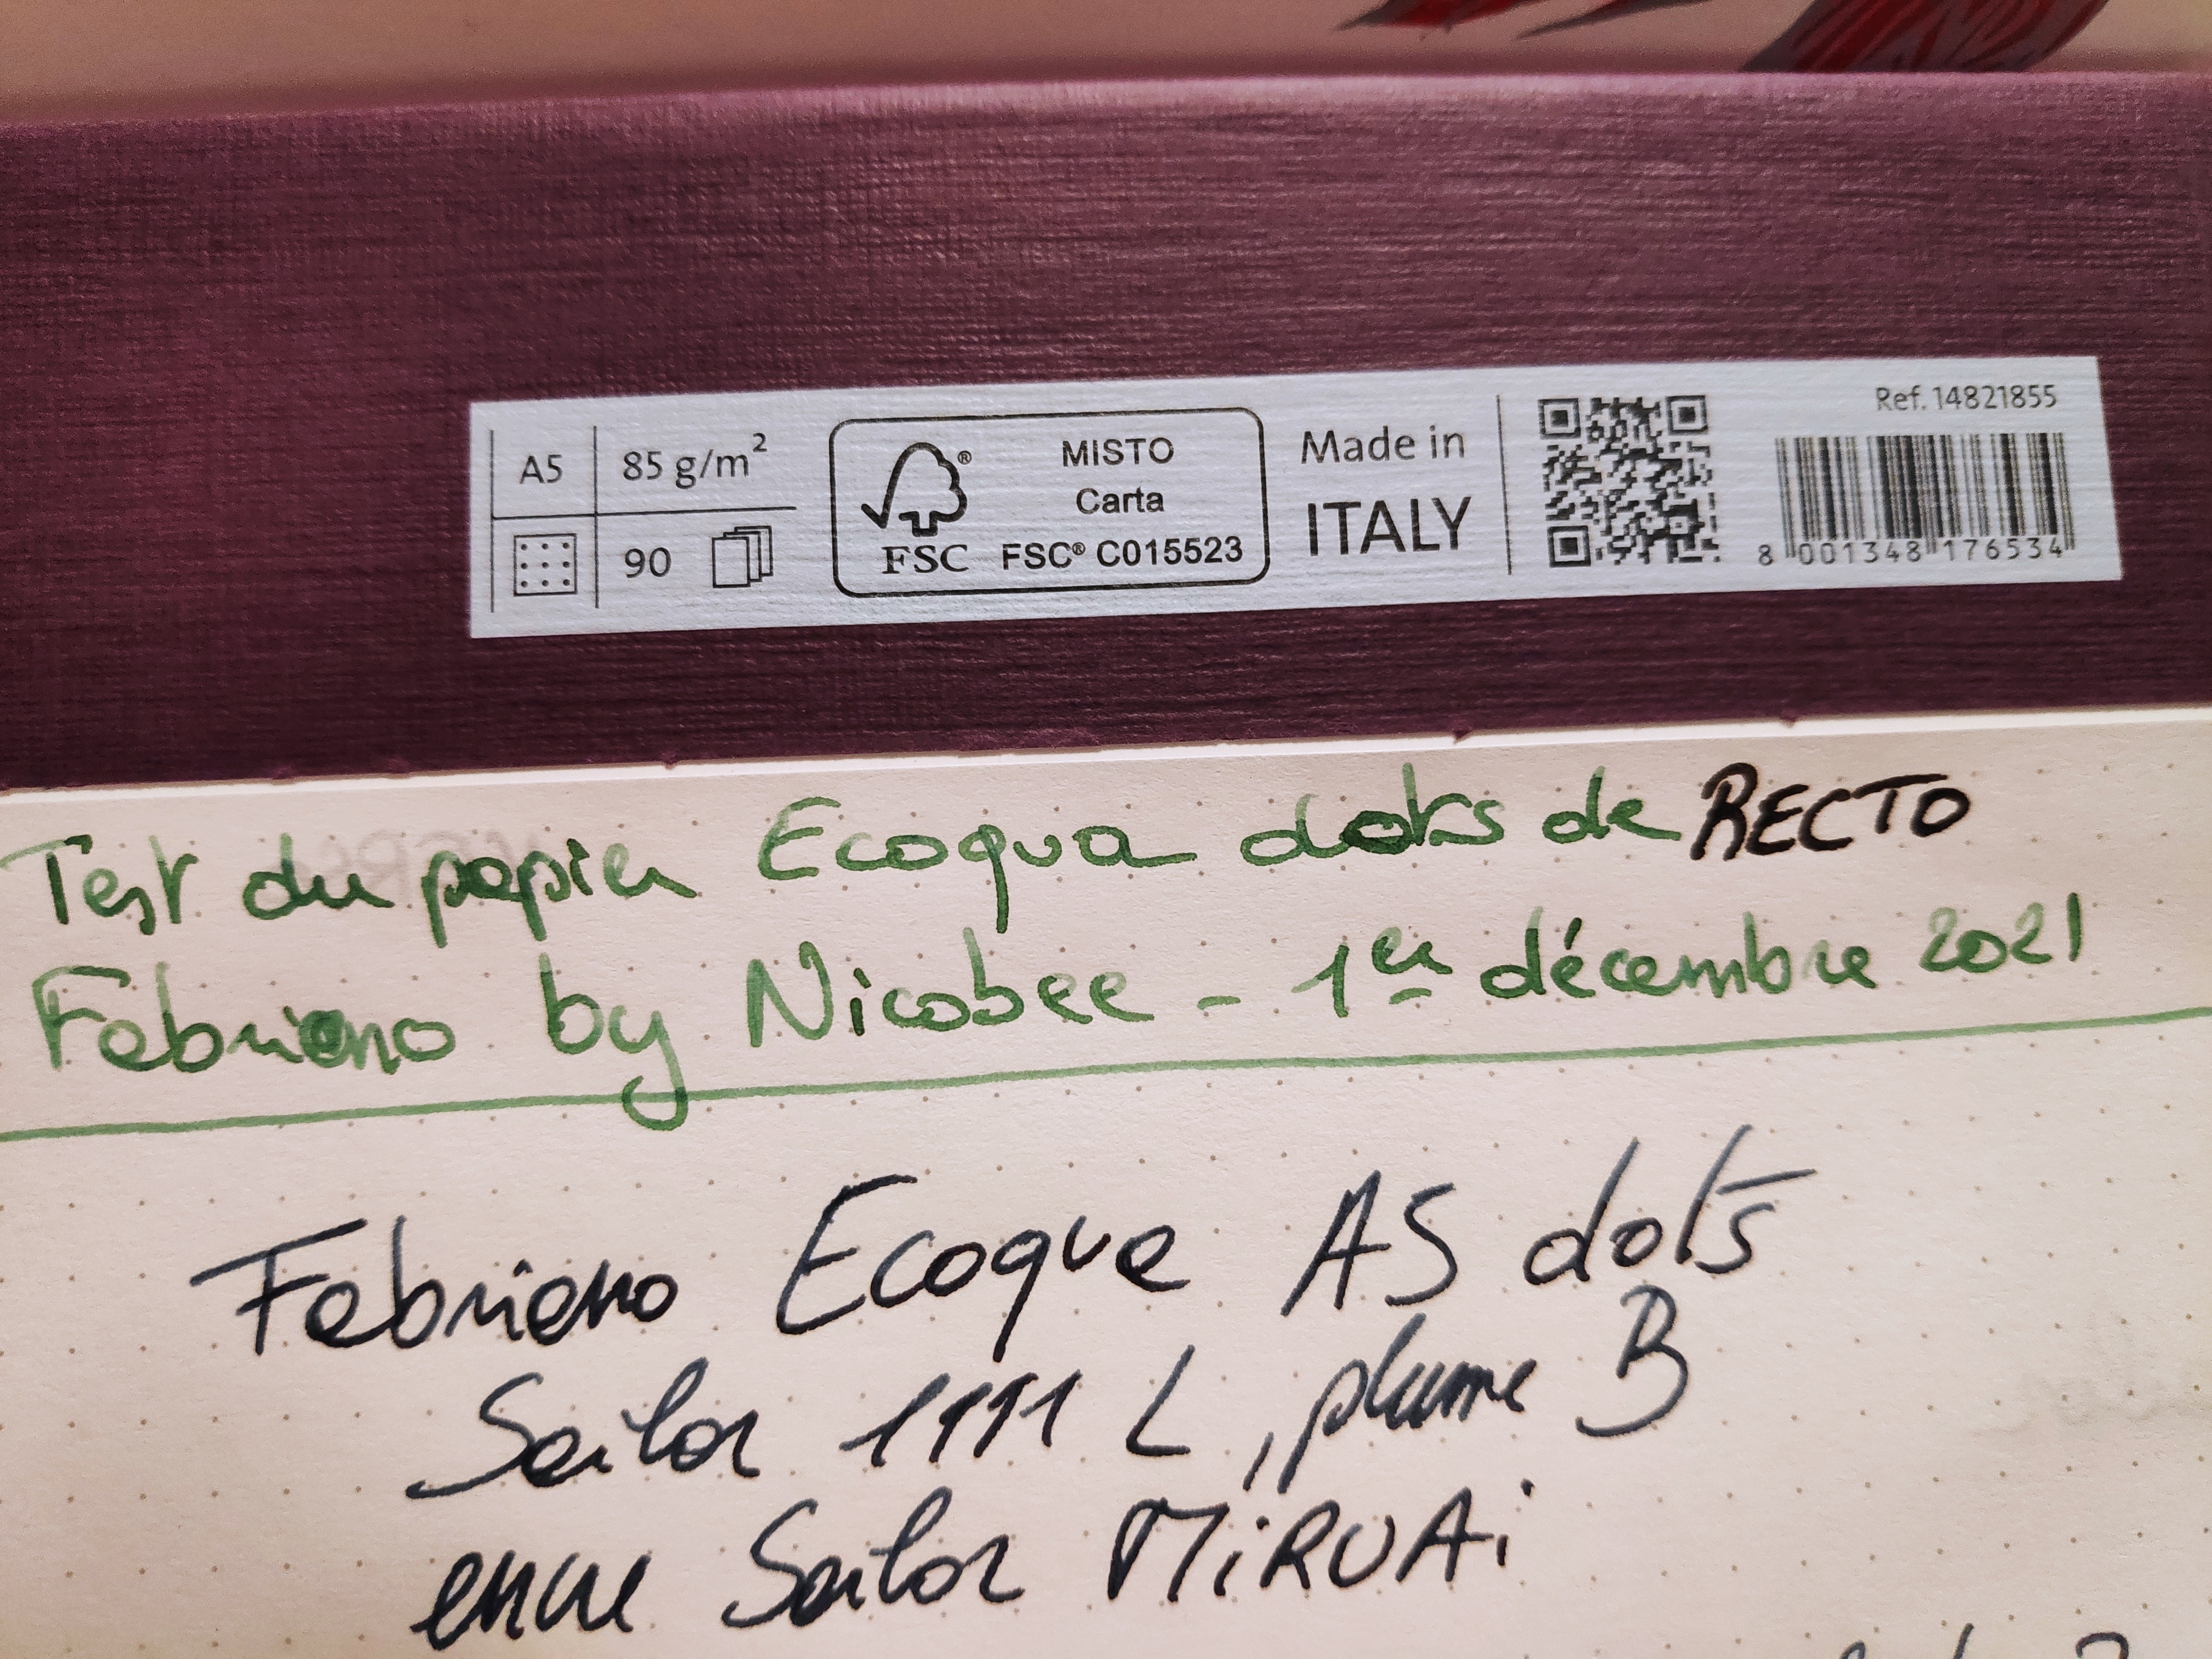 A5
85 g/m²
90
MISTO
Carta
FSC
FSC® C015523
Made in
ITALY
Ref. 14821855
8 001348 176534
Test du papier Ecoqua dots de RECTO
Fabriano by Nicobee - 1er décembre 2021
Fabriano Ecoqua A5 dots
Sailor 1111 L, plume B
encre Sailor MiRUAi